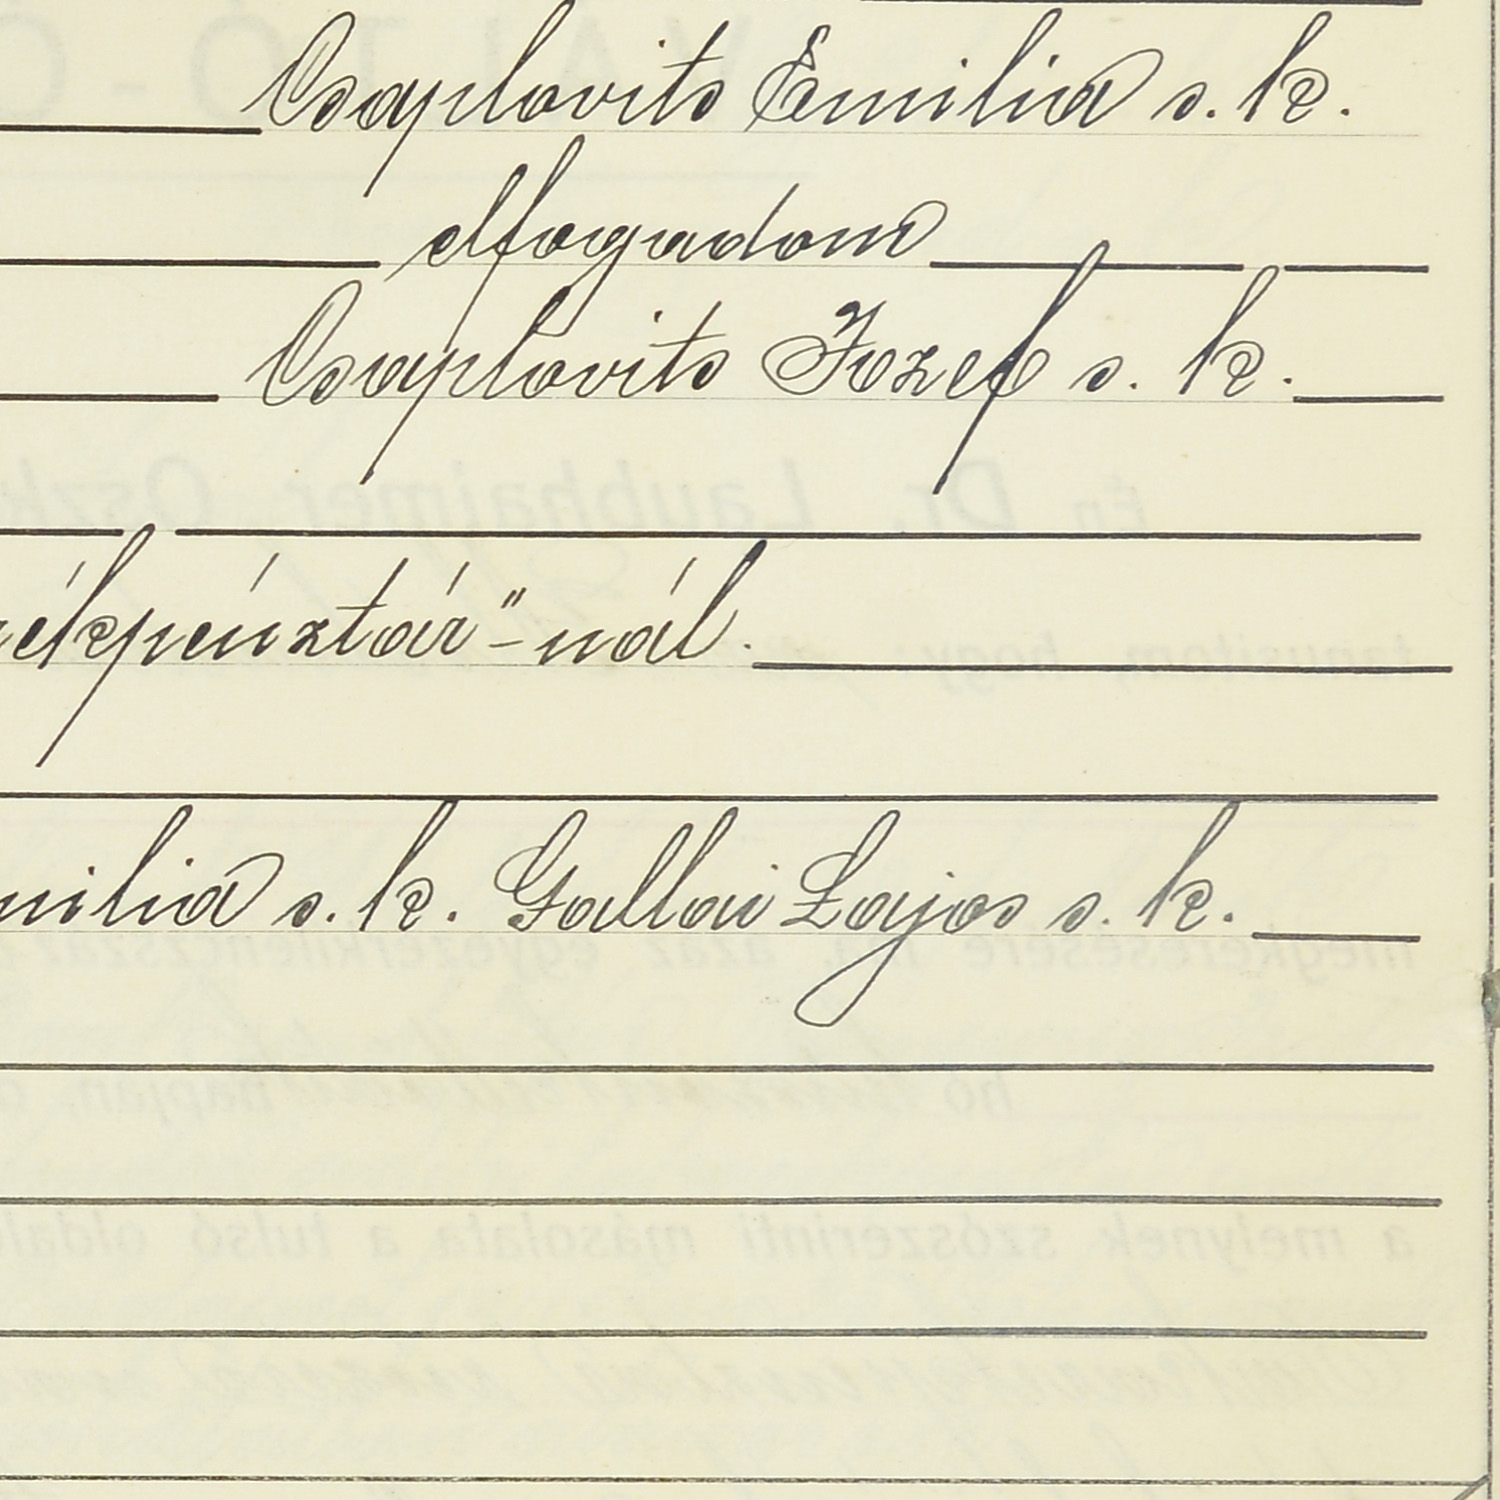 Csaplovits Emilia s. k.
elfogadom
Csaplovits Jozef s. k.
ékpénztár"-nál.
milia s. k. Gallai Lajos s. k.